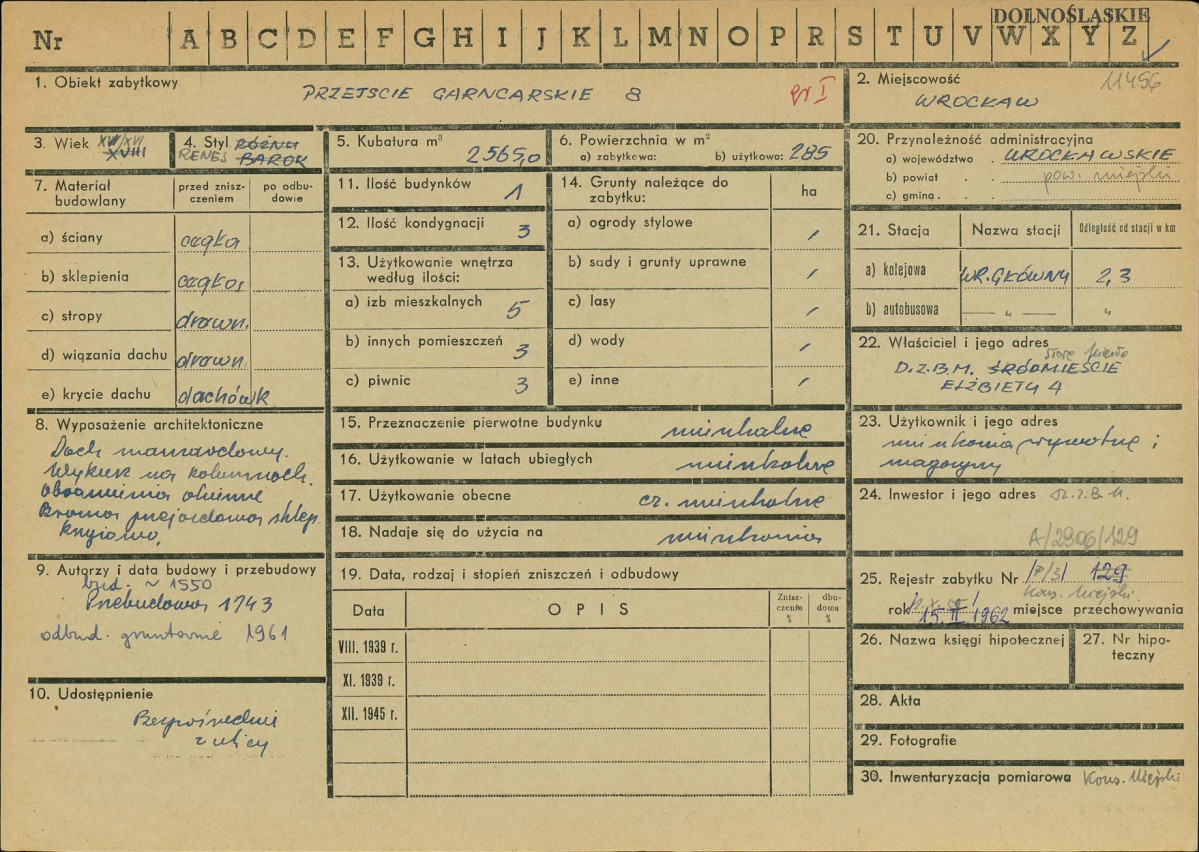 DOLNOŚLĄSKIE
Nr A B C D E F G H I J K L M N O P R S T U V W X Y Z
1. Obiekt zabytkowy
PRZEJŚCIE GARNCARSKIE 8
gr I
2. Miejscowość
11456
WROCŁAW
3. Wiek XVI/XVI
XVIII
4. Styl RÓŻNY
RENES BAROK
5. Kubatura m³
2565,0
6. Powierzchnia w m²
a) zabytkowa: b) użytkowa: 285
20. Przynależność administracyjna
a) województwo . WROCŁAWSKIE
b) powiat . . pow. miejski
c) gmina . .
7. Materiał budowlany
przed zniszczeniem
po odbudowie
a) ściany cegła
b) sklepienia cegła
c) stropy drewn.
d) wiązania dachu drewn.
e) krycie dachu dachówk
11. Ilość budynków 1
12. Ilość kondygnacji 3
13. Użytkowanie wnętrza
według ilości:
a) izb mieszkalnych 5
b) innych pomieszczeń 3
c) piwnic 3
14. Grunty należące do
zabytku:
ha
a) ogrody stylowe /
b) sady i grunty uprawne /
c) lasy /
d) wody /
e) inne /
21. Stacja Nazwa stacji Odległość od stacji w km
a) kolejowa WR. GŁÓWNY 2,3
b) autobusowa — „ — „
22. Właściciel i jego adres
Stare Miasto
D.Z.B.M. ŚRÓDMIEŚCIE
ELŻBIETY 4
8. Wyposażenie architektoniczne
Dach mansardowy.
Wykusz na kolumnach.
Obramienia okienne
Brama przejazdowa sklep.
krzyżowo.
15. Przeznaczenie pierwotne budynku mieszkalne
16. Użytkowanie w latach ubiegłych mieszkalne
17. Użytkowanie obecne cz. mieszkalne
18. Nadaje się do użycia na mieszkania
23. Użytkownik i jego adres
mieszkania prywatne i
magazyny
24. Inwestor i jego adres D.Z.B.M.
A/2906/129
9. Autorzy i data budowy i przebudowy
bud. ~ 1550
Przebudowa 1743
odbud. gruntownie 1961
19. Data, rodzaj i stopień zniszczeń i odbudowy
Data OPIS Zniszczenia % dbudowa %
VIII. 1939 r.
XI. 1939 r.
XII. 1945 r.
25. Rejestr zabytku Nr 129
Kons. Miejski
rok 15. II 1962 miejsce przechowywania
26. Nazwa księgi hipotecznej
27. Nr hipoteczny
10. Udostępnienie
Bezpośrednie
z ulicy
28. Akta
29. Fotografie
30. Inwentaryzacja pomiarowa Kons. Miejski